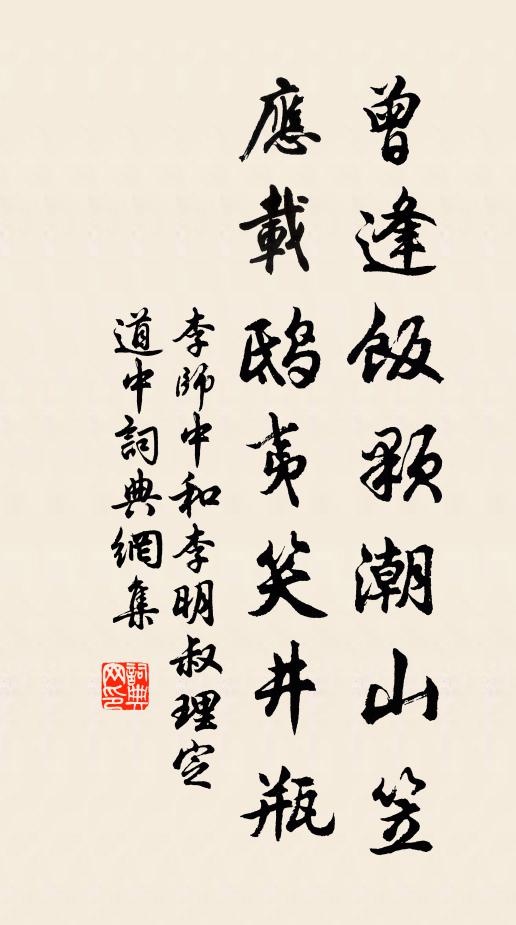 曾逢飯顆潮山笠
應載鴟夷笑井瓶
李師中和李明叔理定
道中詞典網集
詞典
网印